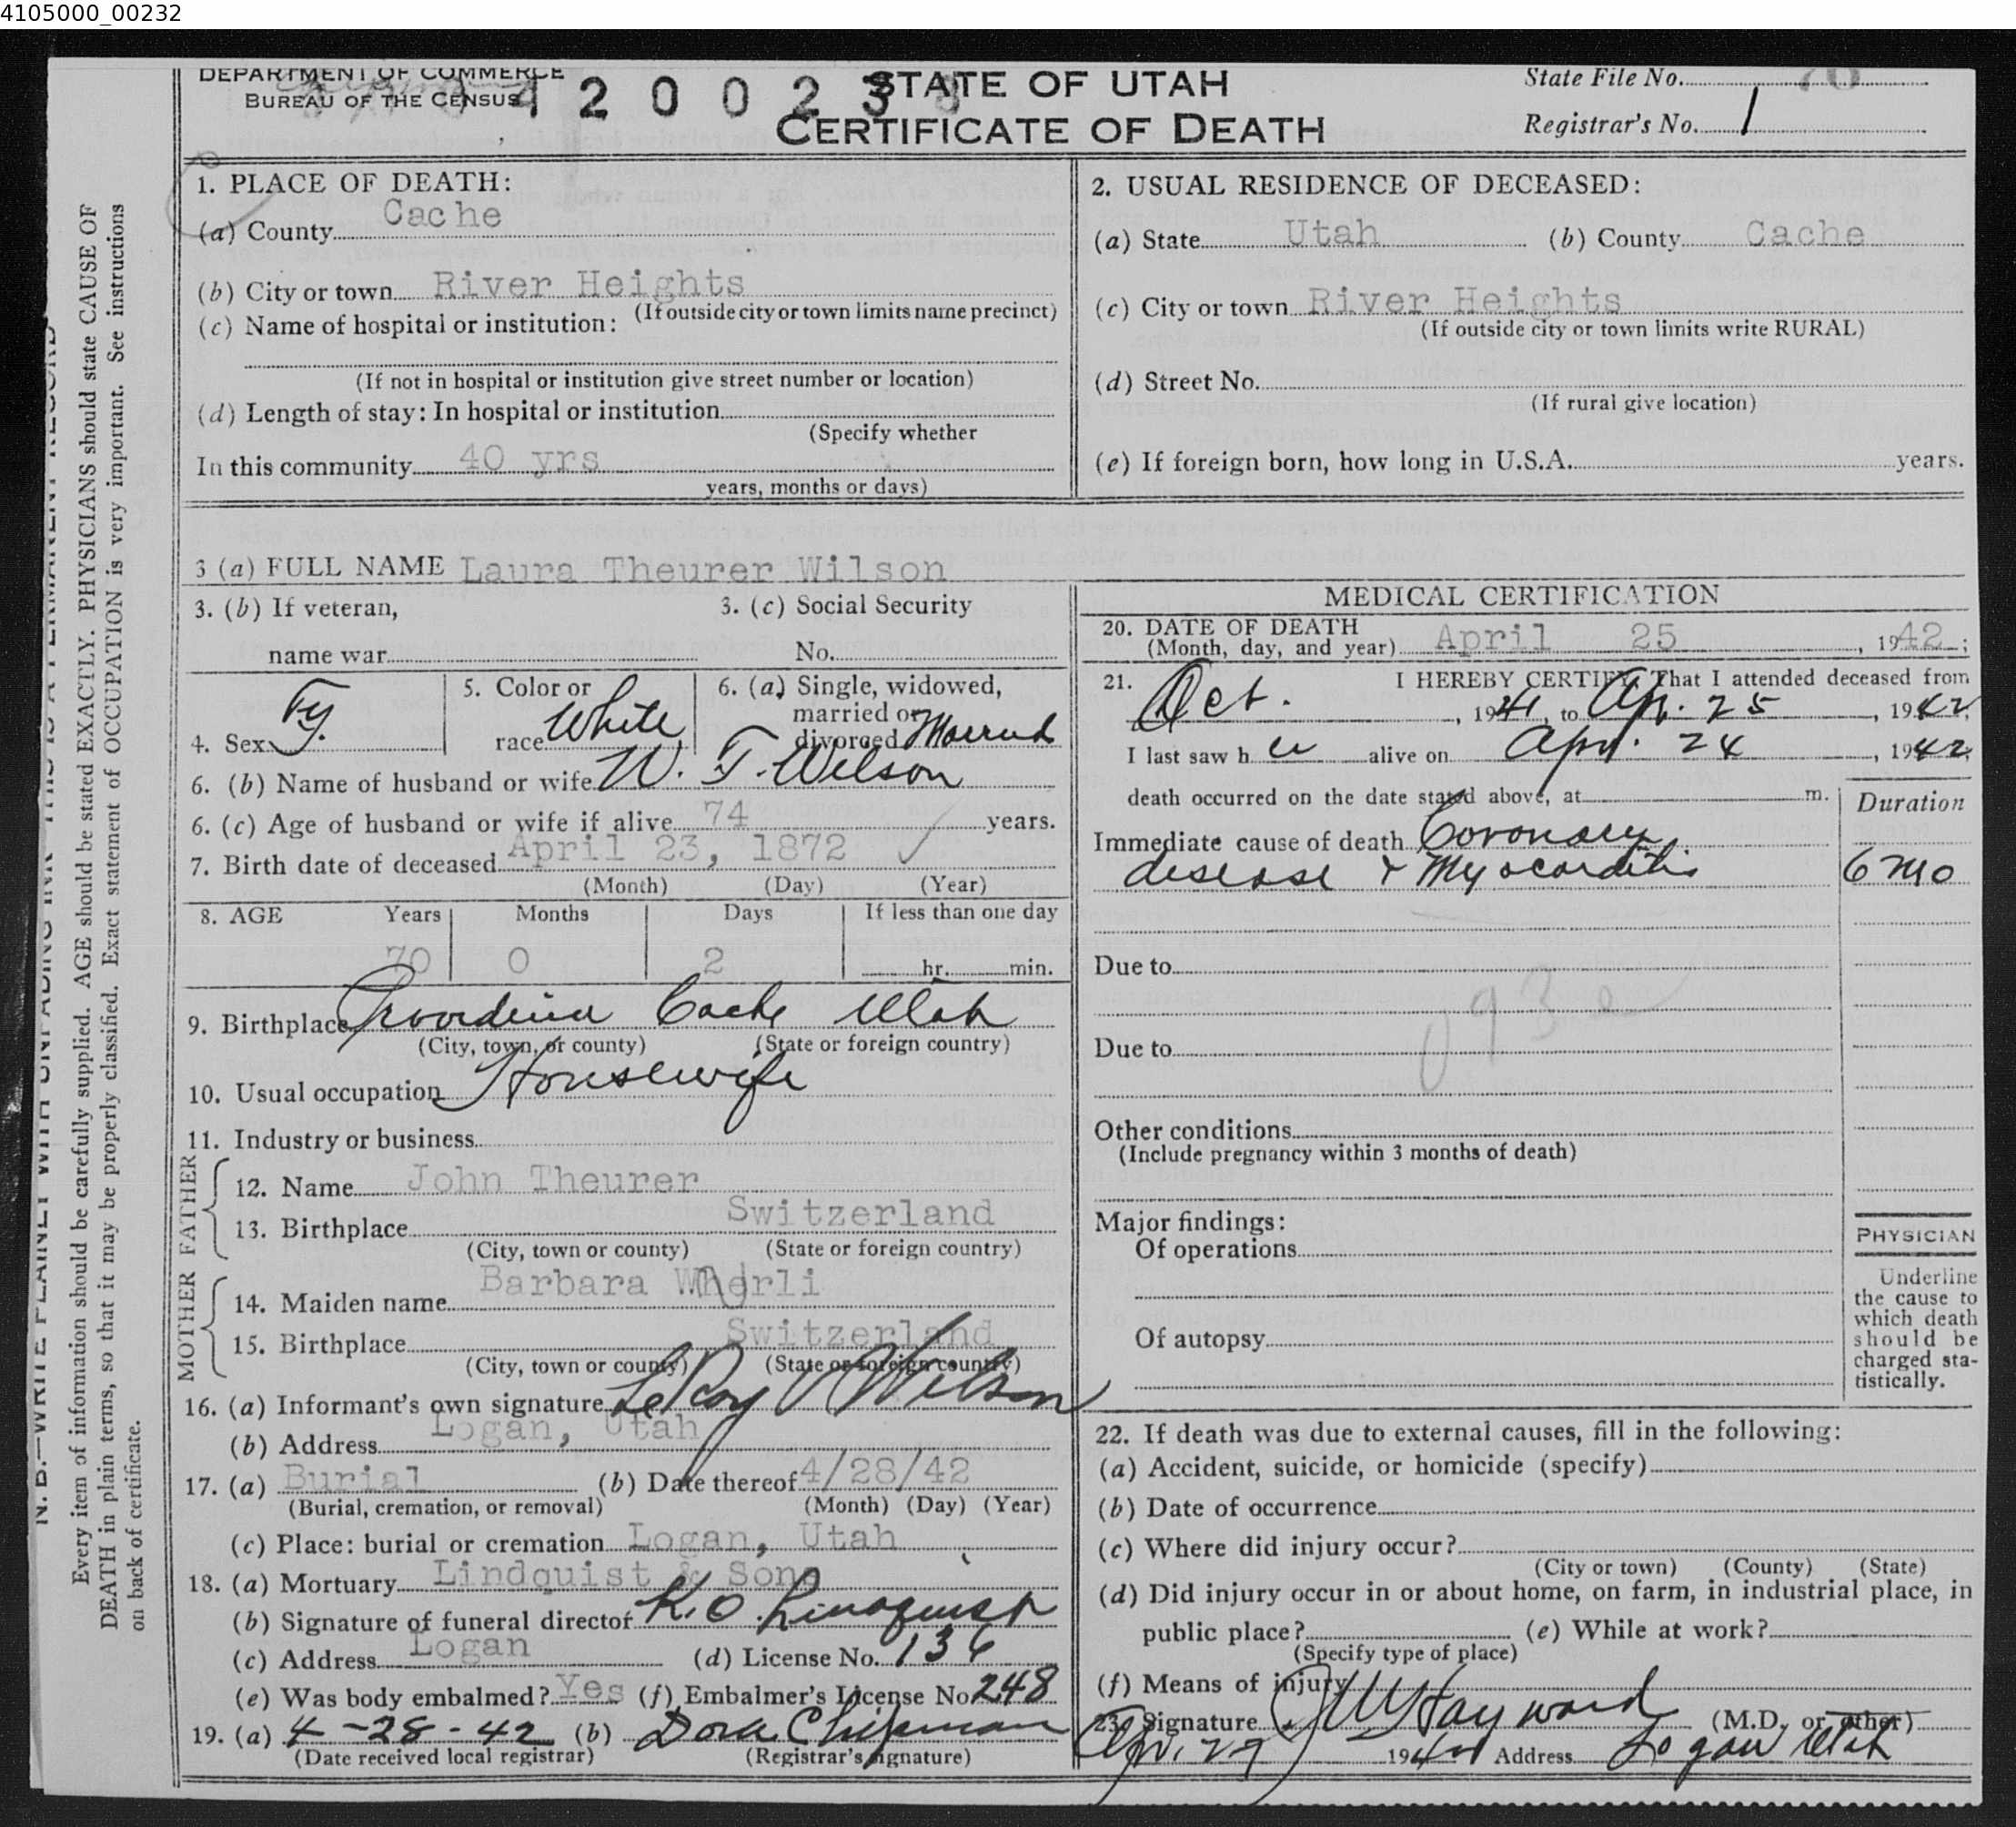 4105000_00232
DEPARTMENT OF COMMERCE
BUREAU OF THE CENSUS
4 2 0 0 2 3
STATE OF UTAH
CERTIFICATE OF DEATH
State File No. 70
Registrar's No. 1
N. B.—WRITE PLAINLY WITH UNFADING INK—THIS IS A PERMANENT RECORD
Every item of information should be carefully supplied. AGE should be stated EXACTLY. PHYSICIANS should state CAUSE OF
DEATH in plain terms, so that it may be properly classified. Exact statement of OCCUPATION is very important. See instructions
on back of certificate.
1. PLACE OF DEATH:
(a) County Cache
(b) City or town River Heights
(If outside city or town limits name precinct)
(c) Name of hospital or institution:
(If not in hospital or institution give street number or location)
(d) Length of stay: In hospital or institution
(Specify whether
In this community 40 yrs
years, months or days)
2. USUAL RESIDENCE OF DECEASED:
(a) State Utah (b) County Cache
(c) City or town River Heights
(If outside city or town limits write RURAL)
(d) Street No.
(If rural give location)
(e) If foreign born, how long in U.S.A. years.
3 (a) FULL NAME Laura Theurer Wilson
3. (b) If veteran,
name war
3. (c) Social Security
No.
4. Sex
5. Color or
race White
6. (a) Single, widowed,
married or
divorced Married
6. (b) Name of husband or wife W. T. Wilson
6. (c) Age of husband or wife if alive 74 years.
7. Birth date of deceased April 23, 1872
(Month) (Day) (Year)
8. AGE Years Months Days If less than one day
70 0 2 hr. min.
9. Birthplace Providence Cache Utah
(City, town, or county) (State or foreign country)
10. Usual occupation Housewife
11. Industry or business
FATHER
12. Name John Theurer
13. Birthplace Switzerland
(City, town or county) (State or foreign country)
MOTHER
14. Maiden name Barbara
15. Birthplace Switzerland
(City, town or county) (State or foreign country)
16. (a) Informant's own signature LeRoy Wilson
(b) Address Logan, Utah
17. (a) Burial (b) Date thereof 4/28/42
(Burial, cremation, or removal) (Month) (Day) (Year)
(c) Place: burial or cremation Logan, Utah
18. (a) Mortuary Lindquist & Sons
(b) Signature of funeral director K. O. Lindquist
(c) Address Logan (d) License No. 136
(e) Was body embalmed? Yes (f) Embalmer's License No 248
19. (a) 4-28-42 (b) Dora Chipman
(Date received local registrar) (Registrar's signature)
MEDICAL CERTIFICATION
20. DATE OF DEATH
(Month, day, and year) April 25, 1942;
21. I HEREBY CERTIFY, That I attended deceased from
Oct., 1941, to Ap. 25, 1942,
I last saw h er alive on Apr. 24, 1942,
death occurred on the date stated above, at m.
Duration
Immediate cause of death Coronary
disease & Myocarditis 6 mo
Due to
Due to
Other conditions
(Include pregnancy within 3 months of death)
Major findings:
Of operations
Of autopsy
PHYSICIAN
Underline
the cause to
which death
should be
charged sta-
tistically.
22. If death was due to external causes, fill in the following:
(a) Accident, suicide, or homicide (specify)
(b) Date of occurrence
(c) Where did injury occur?
(City or town) (County) (State)
(d) Did injury occur in or about home, on farm, in industrial place, in
public place? (e) While at work?
(Specify type of place)
(f) Means of injury
23. Signature Hayward (M.D. or other)
194 Address Logan Utah